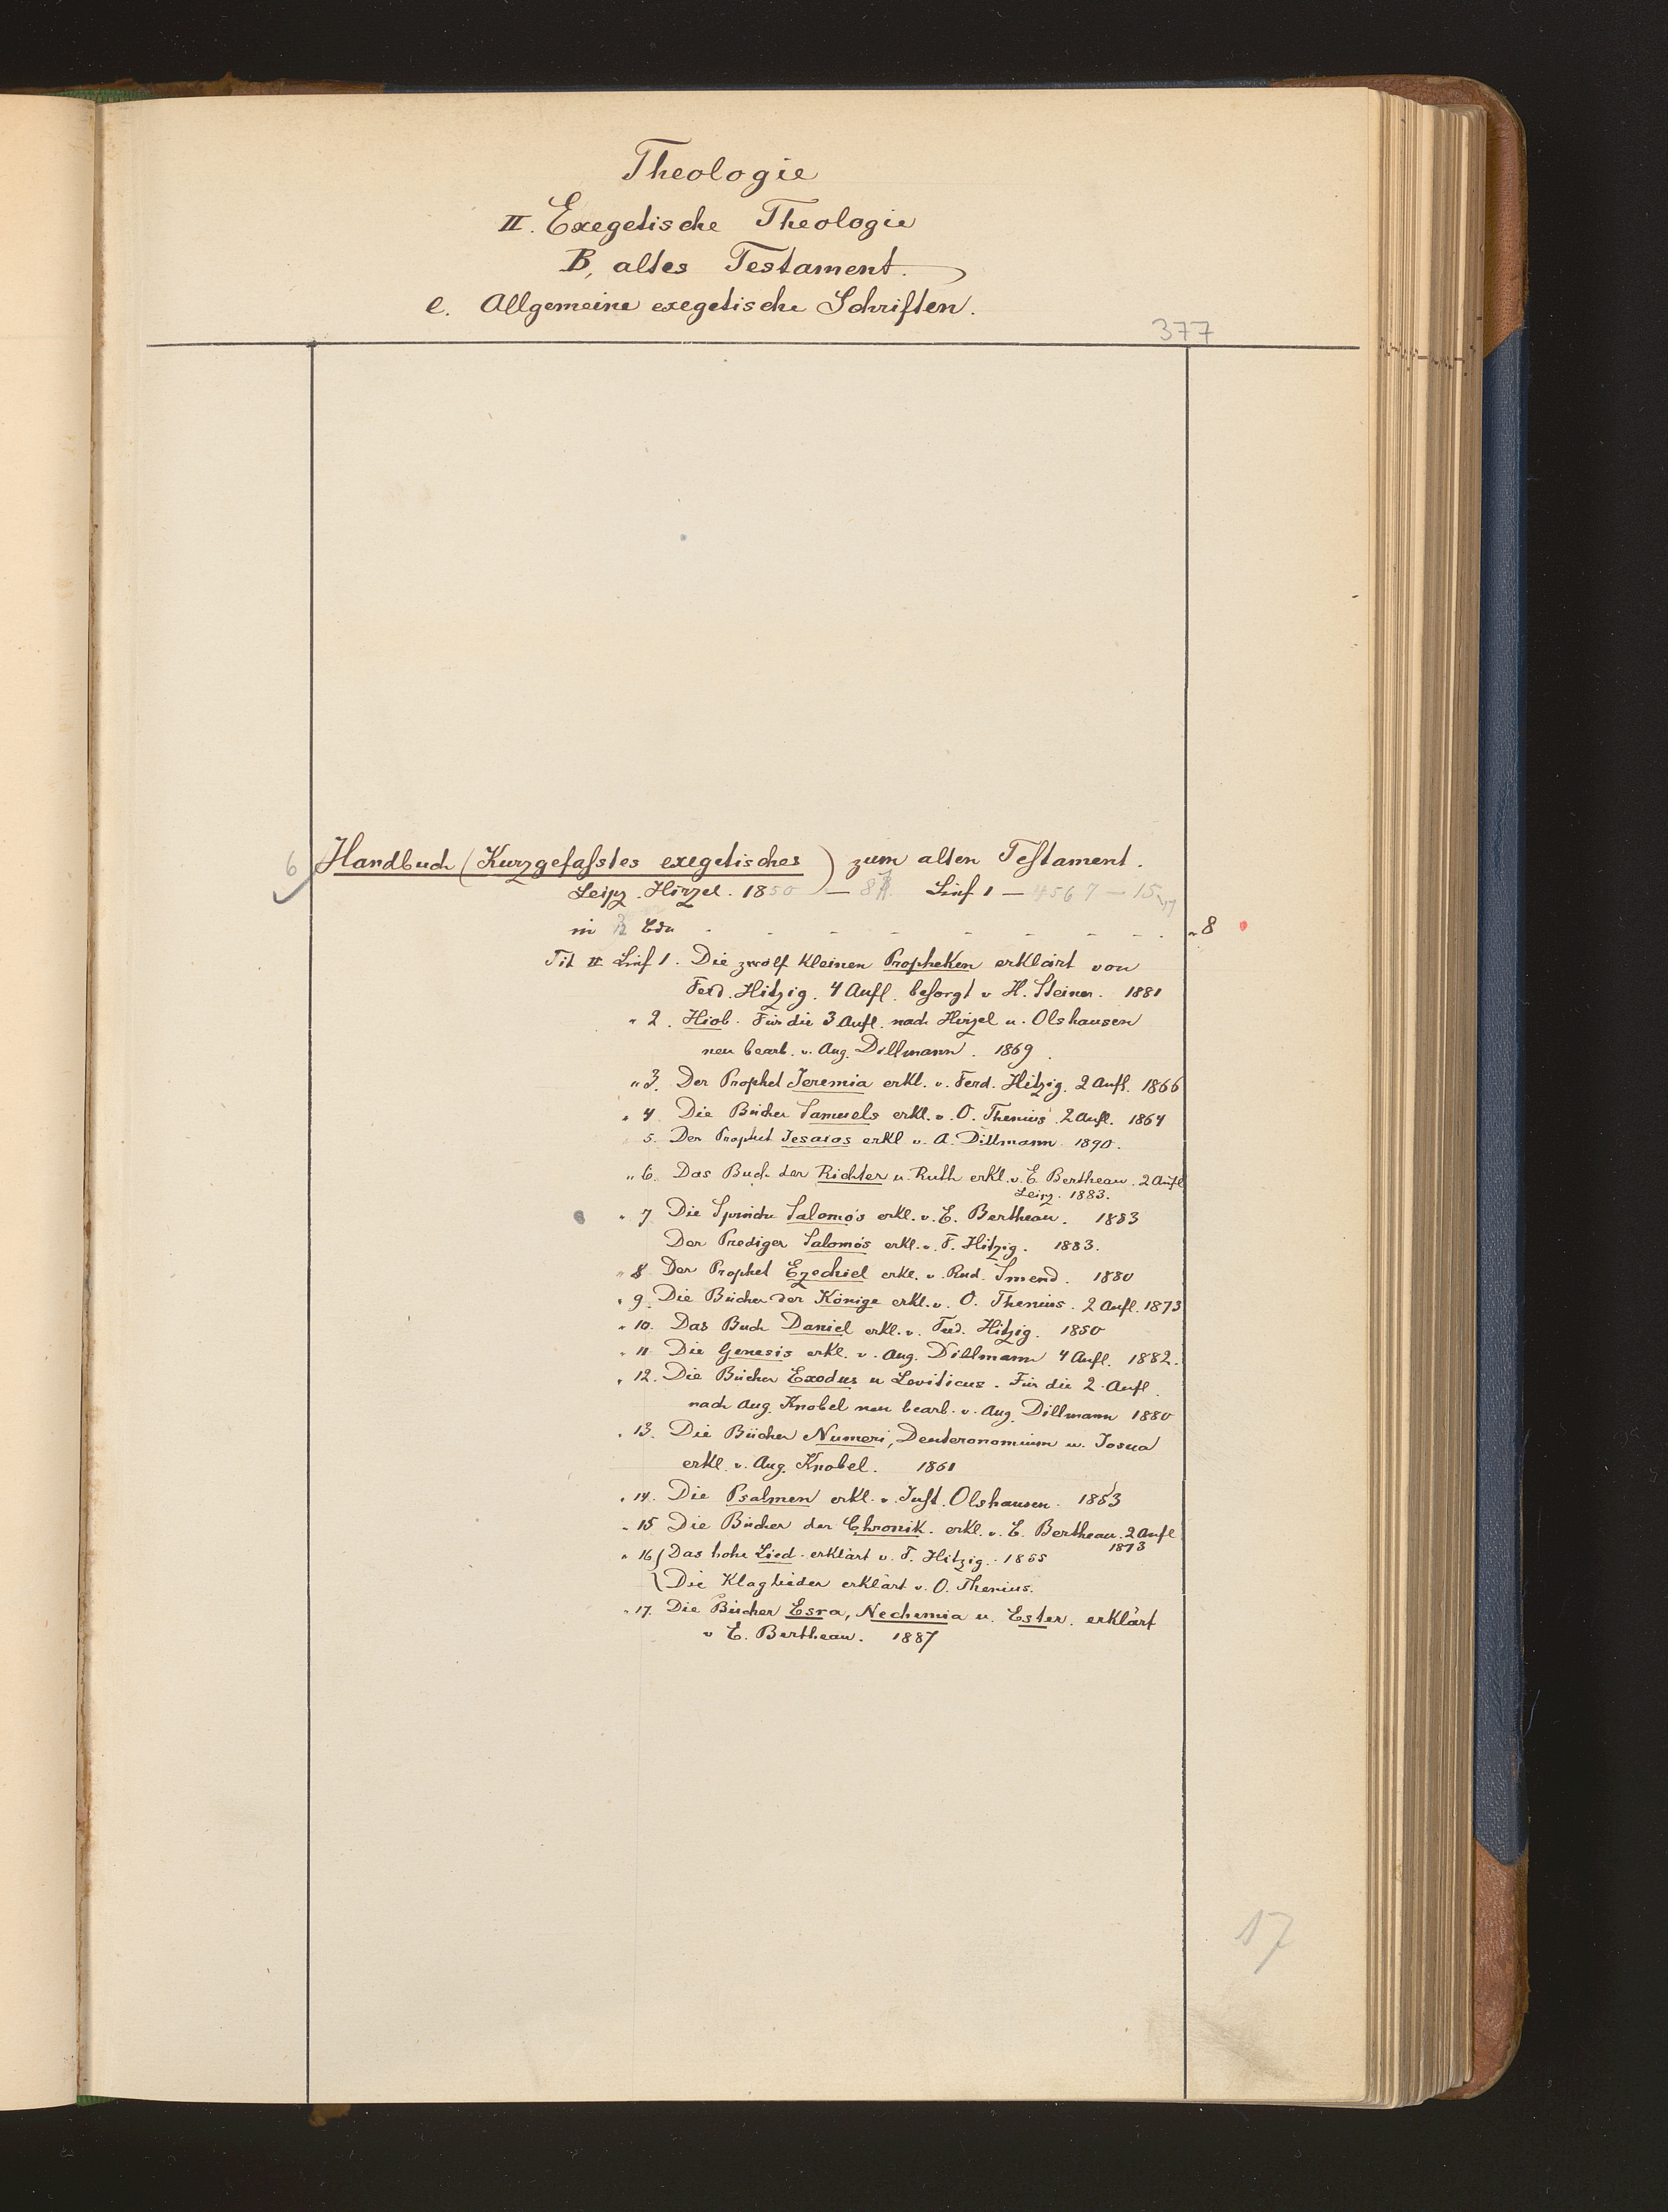 Theologie
II. Exegetische Theologie
B, altes Testament.
e. Allgemeine exegetische Schriften.
377
6 Handbuch (Kurzgefasstes exegetisches) zum alten Testament.
Leipz. Hirzel. 1850 — 8 Lief 1 — 4567 — 15
in Bdn - - - - - - - - „ 8
Tit II Lief 1. Die zwölf kleinen Propheten erklärt von
Ferd. Hitzig. 4 Aufl. besorgt v H. Steiner. 1881
" 2. Hiob. Für die 3 Aufl. nach Hirzel u. Olshausen
neu bearb. v. Aug. Dillmann. 1869.
" 3. Der Prophet Jeremia erkl. v. Ferd. Hitzig. 2 Aufl. 1866
" 4. Die Bücher Samuels erkl. v. O. Thenius. 2 Aufl. 1864
5. Der Prophet Jesaias erkl v. A. Dillmann 1890.
" 6. Das Buch der Richter u. Ruth erkl. v. E. Bertheau. 2 Aufl
Leipz. 1883.
" 7 Die Sprüche Salomo's erkl. v. E. Bertheau. 1883
Der Prediger Salomo's erkl. v. F. Hitzig. 1883.
" 8 Der Prophet Ezechiel erkl. v. Rud. Smend. 1880
" 9. Die Bücher der Könige erkl. v. O. Thenius. 2 Aufl. 1873
" 10. Das Buch Daniel erkl. v. Ferd. Hitzig. 1850
" 11 Die Genesis erkl. v. Aug. Dillmann 4 Aufl. 1882.
" 12. Die Bücher Exodus u Leviticus. Für die 2. Aufl.
nach Aug. Knobel neu bearb. v. Aug. Dillmann 1880
" 13. Die Bücher Numeri, Deuteronomium u. Josua
erkl. v. Aug. Knobel. 1861
" 14. Die Psalmen erkl. v. Just. Olshausen. 1853
" 15 Die Bücher der Chronik. erkl. v. E. Bertheau. 2 Aufl
1873
" 16 { Das hohe Lied. erklärt v. F. Hitzig. 1855
Die Klaglieder erklärt v. O. Thenius.
" 17. Die Bücher Esra, Nechemia u. Ester. erklärt
v E. Bertheau. 1887
17